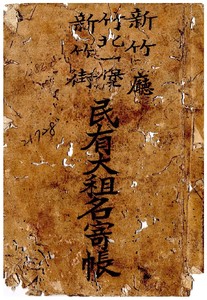 新竹廳
竹北一堡
新竹街
民有大租名寄帳